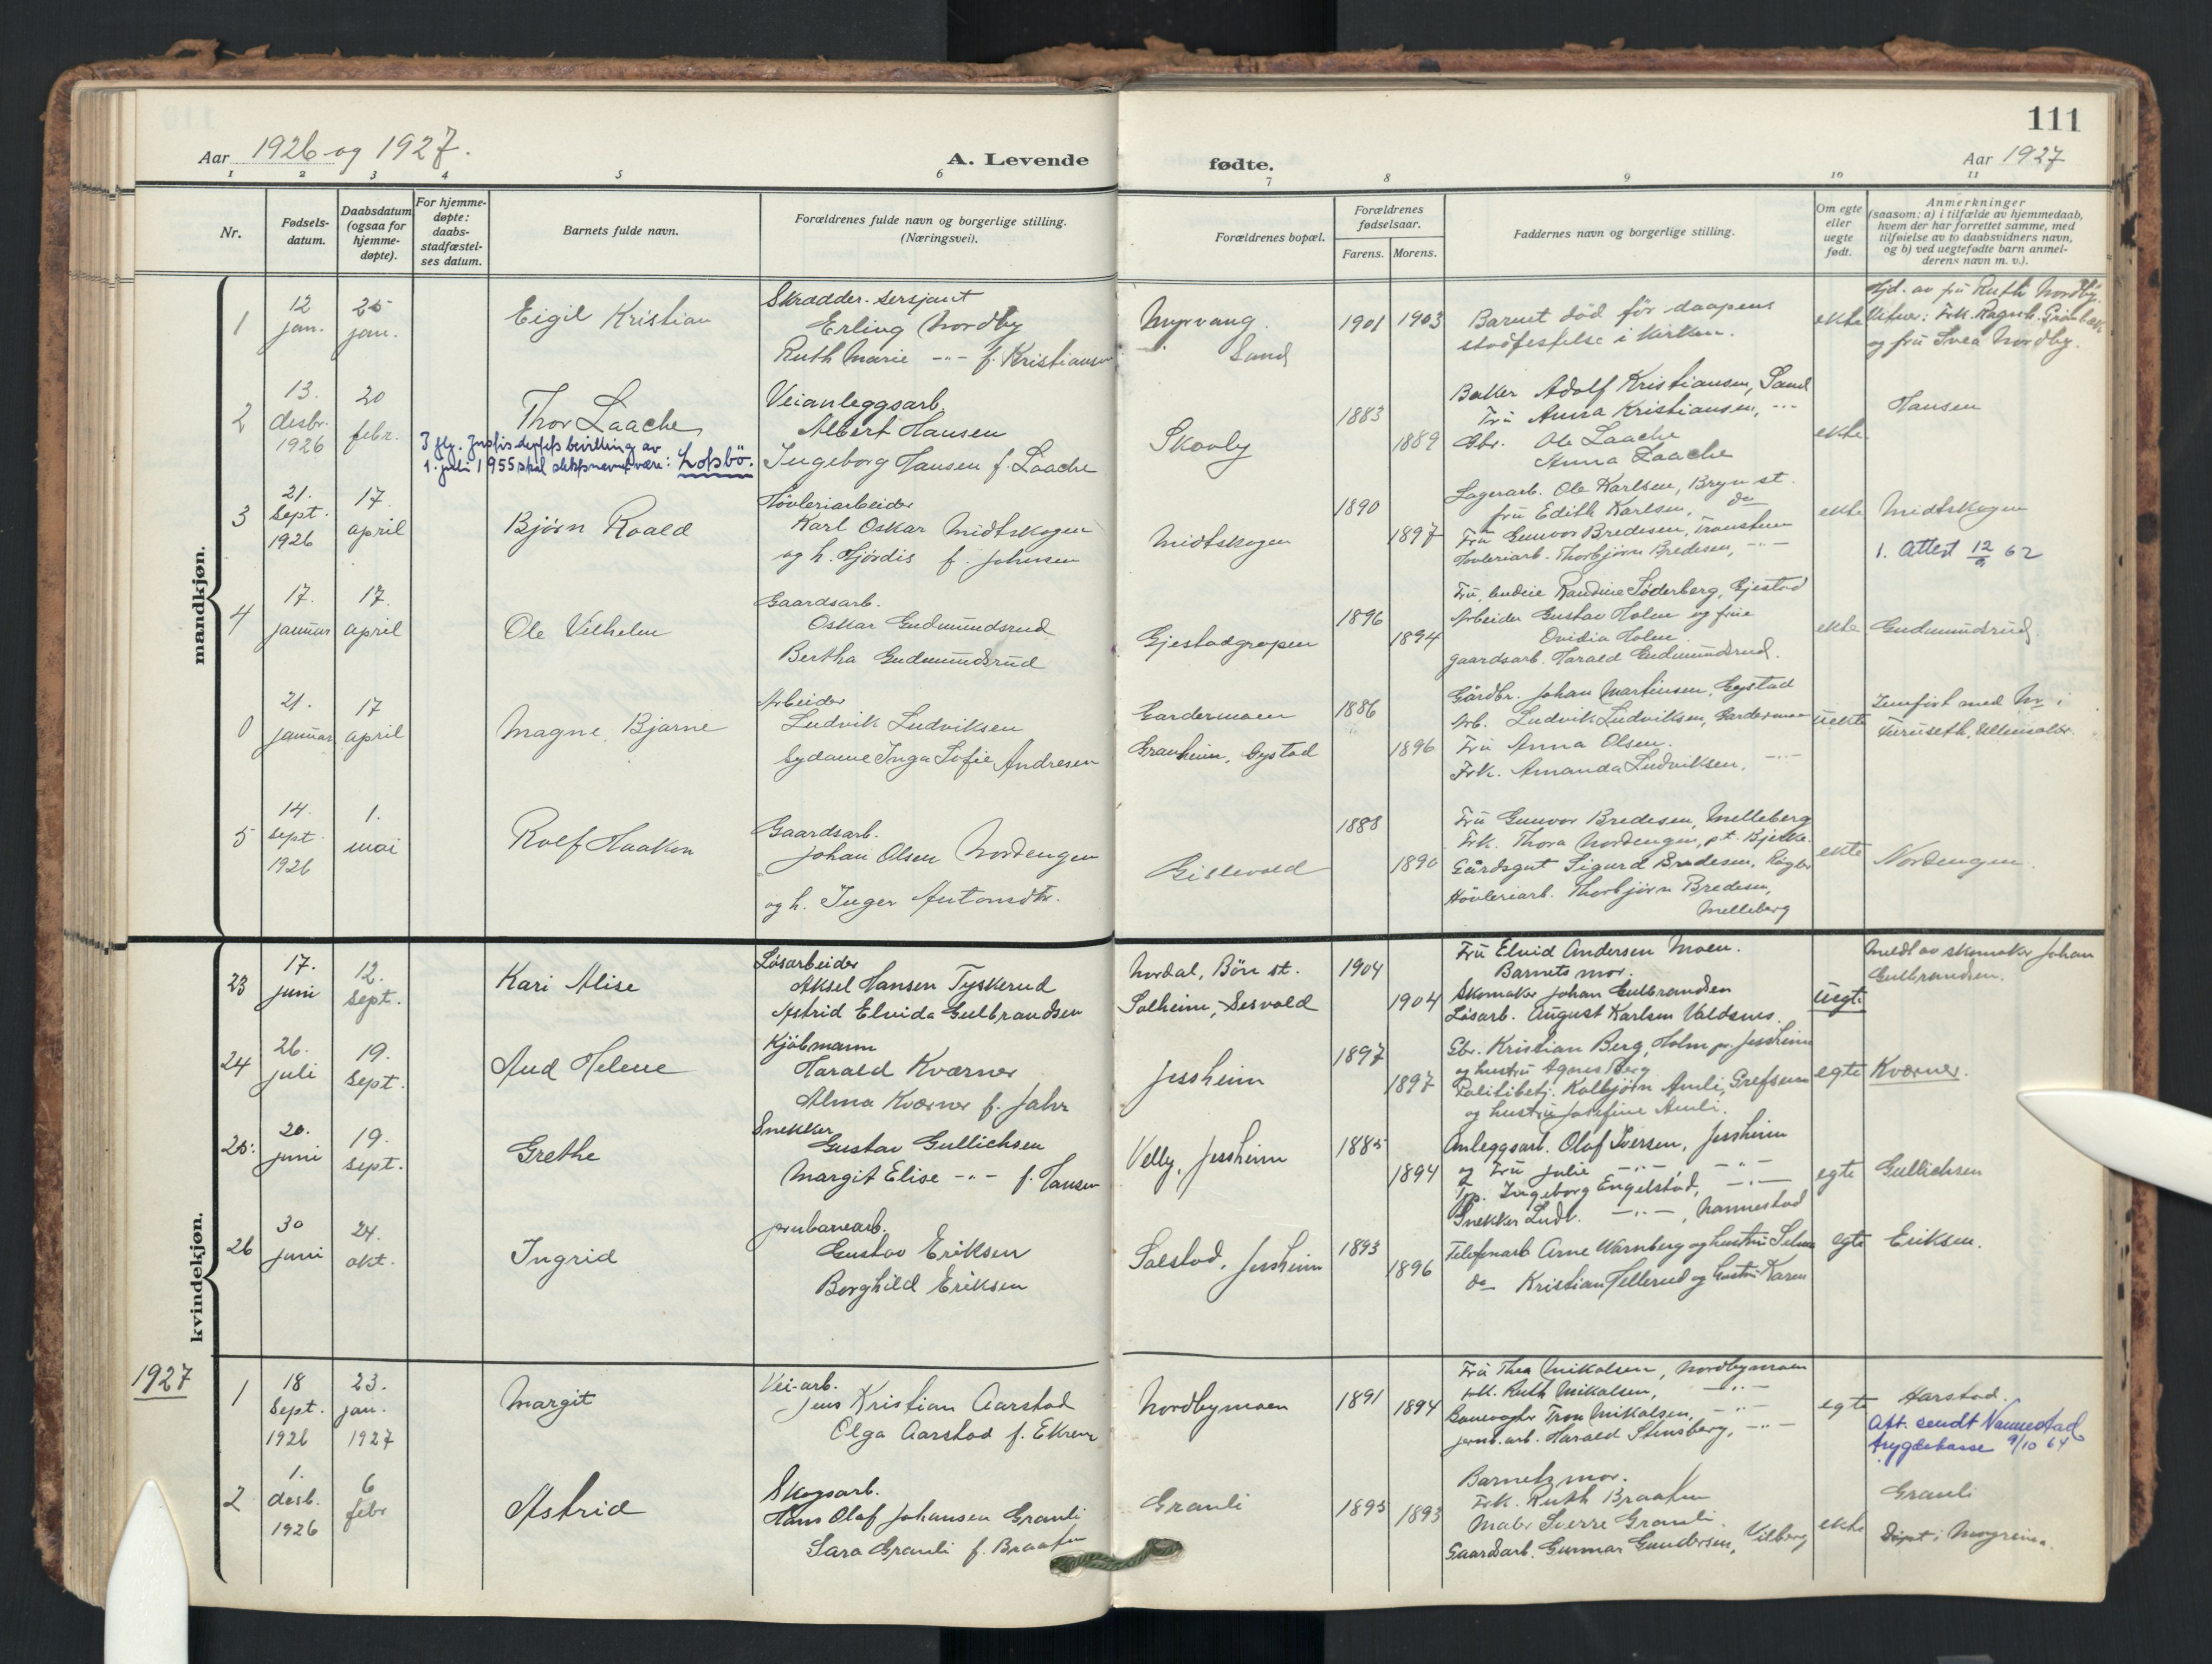 111
Aar 1926 og 1927.
A. Levende
fødte.
Aar 1927
1 2 3 4 5 6 7 8 9 10 11
Nr.
Fødsels-
datum.
Daabsdatum
(ogsaa for
hjemme-
døpte).
For hjemme-
døpte:
daabs-
stadfæstel-
ses datum.
Barnets fulde navn.
Forældrenes fulde navn og borgerlige stilling.
(Næringsvei).
Forældrenes bopæl.
Forældrenes
fødselsaar.
Farens. Morens.
Faddernes navn og borgerlige stilling.
Om egte
eller
uegte
født.
Anmerkninger
(saasom: a) i tilfælde av hjemmedaab,
hvem der har forrettet samme, med
tilføielse av to daabsvidners navn,
og b) ved uegtefødte barn anmel-
derens navn m. v.).
mandkjøn.
1
12
jan.
25
jan.
Eigil Kristian
Skrædder-sersjant
Erling Nordby
Ruth Marie -"- f. Kristiansen
Myrvang
Sand
1901 1903
Barnet död för daapens
stadfestelse i kirken.
ekte
Hjd. av frü Ruth Nordby.
Vitner: Frk. Ragnh.
og frü Svea Nordby.
2
13.
desbr.
1926
20
febr.
Thor Laache
3 flg. Justisdeptets bevilling av
1. juli 1955 skal slektsnavnet være: Lotsbö.
Veianleggsarb.
Albert Hansen
Ingeborg Hansen f. Laache
Skovly
1883
1889
Baker Adolf Kristiansen, Sand
Frü Anna Kristiansen, -"-
Gbr. Ole Laache
Anna Laache
ekte
Hansen
3
21.
Sept.
1926
17
april
Bjørn Roald
Høvleriarbeider
Karl Oskar Midtskogen
og h. Hjördis f. Johnsen
Midtskogen
1890
1897
Lagerarb. Ole Karlsen, Bryn st.
frü Edith Karlsen, do
Frü Gunvor Bredesen,
Hovleriarb. Thorbjörn Bredesen, -"-
ekte
Midtskogen
1. Attest 12/9 62
4
17.
januar
17.
april
Ole Vilhelm
Gaardsarb.
Oskar Gudmundsrud
Bertha Gudmundsrud
Gjestadgropen
1896
1894
Frü Randine Söderberg, Gjestad
Arbeider Gustav Holm og frue
Ovidia Holm.
gaardsarb. Harald Gudmundsrud.
ekte
Gudmundsrud
0
21.
januar
17
april
Magne Bjarne
Arbeider
Ludvik Ludviksen
Sydame Inga Sofie Andresen
Gardermoen
Granheim, Gystad
1886
1896
Gårdbr. Johan Martinsen, Gystad
Arb. Ludvik Ludviksen, Gardermoen
Frü Anna Olsen.
Frk. Amanda Ludviksen, -"-
uekte
Jemført med Nr i
Furuseth, Ullensaker.
5
14.
sept.
1926
1.
mai
Rolf Haakon
Gaardsarb.
Johan Olsen Nordengen
og h. Inger Antonsdtr.
Gislevold
1888
1890
Frü Gunvor Bredesen, Melleberg
Frk. Thora Nordengen, pt. Bjerke.
Gårdsgut Sigurd Bredesen,
Hövleriarb. Thorbjörn Bredesen,
Melleberg
ekte
Nordengen.
kvindekjøn.
23
17.
juni
12.
Sept.
Kari Alise
Løsarbeider
Aksel Hansen Tyskerud
Astrid Elvida Gulbrandsen
Nordal, Bön st.
Solheim, Sesvold
1904
1904
Frü Elvid Andersen Moen.
Barnets mor.
Skomaker Johan Gulbrandsen
Løsarb. August Karlsen Valdsnes.
uegte
Meldt av skomaker Johan
Gulbrandsen.
24
26.
juli
19.
Sept.
Aud Helene
Kjöbmann
Harald Kværner
Alma Kværner f. Jahr
Jessheim
1897
1897
Gbr. Kristian Berg, Holm pr. Jessheim
og hustru Agnes Berg
Politibetj. Kolbjörn Amli, Grefsen
og hustru Josefine Amli.
egte
Kværner.
25.
20.
juni
19.
Sept.
Grethe
Snekker
Gustav Gullichsen
Margit Elise -"- f. Hansen
Velly, Jessheim
1885
1894
Anleggsarb. Olaf Iversen, Jessheim
og Frü Julie -"-, -"-
Frk. Ingeborg Engelstad, -"-
Snekker Ludv. -"-, Nannestad
egte
Gullichsen
26
30
juni
24.
okt.
Ingrid
Jernbanearb.
Gustav Eriksen
Borghild Eriksen
Solstad, Jessheim
1893
1896
Telefonarb Arne Warnberg og hustru Selma
do Kristian Hellerud og hustru Karen
egte
Eriksen.
1927
1
18
Sept.
1926
23.
jan.
1927
Margit
Vei-arb.
Jens Kristian Aarstad
Olga Aarstad f. Ekren
Nordbymoen
1891 1894
Frü Thea Mikalsen, Nordbymoen
frk. Ruth Mikalsen, -"-
Banevogter Tron Mikalsen, -"-
jernb.arb. Harald Stensberg, -"-
egte
Aarstad.
Att. sendt Nannestad
trygdekasse 9/10 64
2
1.
desb.
1926
6
febr
Astrid
Skogsarb.
Hans Olaf Johansen Granli
Sara Granli f. Braaten
Granli
1895 1893
Barnets mor.
Frk. Ruth Braaten
Maler Sverre Granli.
Gaardsarb. Gunnar Gundersen, Vilberg
ekte
Granli
Døpt i Mogreina.